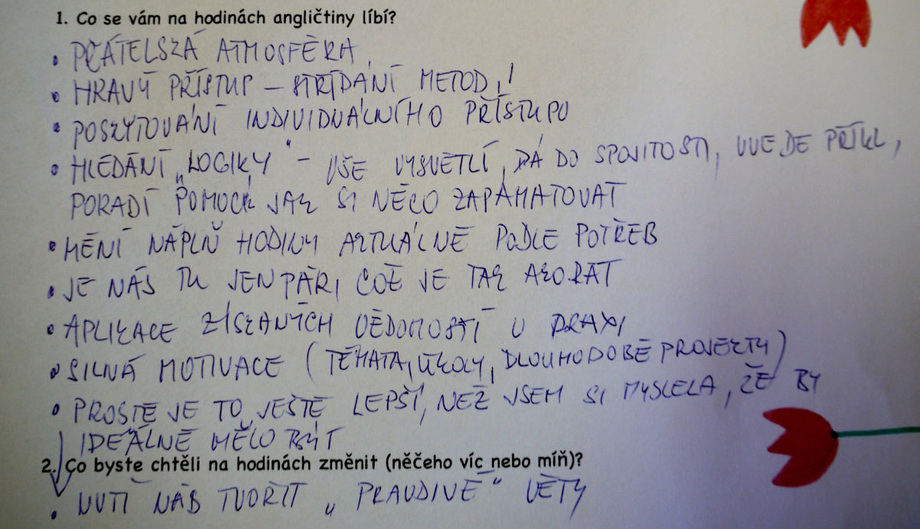 1. Co se vám na hodinách angličtiny líbí?
• PŘÁTELSKÁ ATMOSFÉRA
• HRAVÝ PŘÍSTUP – STŘÍDÁNÍ METOD!
• POSKYTOVÁNÍ INDIVIDUÁLNÍHO PŘÍSTUPU
• HLEDÁNÍ „LOGIKY" – VŠE VYSVĚTLÍ, DÁ DO SPOJITOSTI, UVEDE PŘÍKL.,
PORADÍ POMŮCK JAK SI NĚCO ZAPAMATOVAT
• MĚNÍ NÁPLŇ HODINY AKTUÁLNĚ PODLE POTŘEB
• JE NÁS TU JEN PÁR, COŽ JE TAK AKORÁT
• APLIKACE ZÍSKANÝCH VĚDOMOSTÍ V PRAXI
• SILNÁ MOTIVACE (TÉMATA, ÚKOLY, DLOUHODOBÉ PROJEKTY)
• PROSTĚ JE TO JEŠTĚ LEPŠÍ, NEŽ JSEM SI MYSLELA, ŽE BY
IDEÁLNĚ MĚLO BÝT
2. Co byste chtěli na hodinách změnit (něčeho víc nebo míň)?
• NUTÍ NÁS TVOŘIT „PRAVDIVÉ" VĚTY